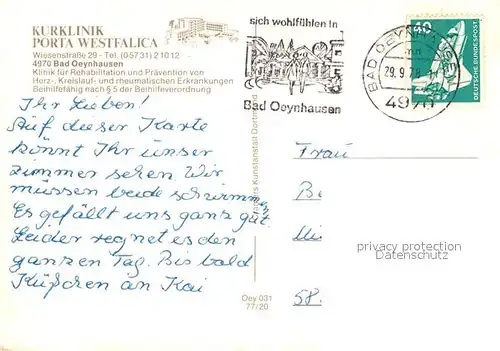 KURKLINIK
PORTA WESTFALICA
Wissenstraße 29 - Tel. (05731) 21012
4970 Bad Oeynhausen
Klinik für Rehabilitation und Prävention von
Herz-, Kreislauf- und rheumatischen Erkrankungen
Beihilfefähig nach § 5 der Beihilfeverordnung
Ihr Lieben!
Auf dieser Karte
könnt Ihr unser
Zimmer sehen. Wir
müssen beide schwimmen
Es gefällt uns ganz gut
Leider regnet es den
ganzen Tag. Bis bald
Küßchen an Kai
sich wohlfühlen in
Bad Oeynhausen
BAD OEYNHAUSEN
29.9.78
4970
DEUTSCHE BUNDESPOST
Kunstanstalt Dortmund
Oey 031
77/20
Frau
58.
privacy protection
Datenschutz